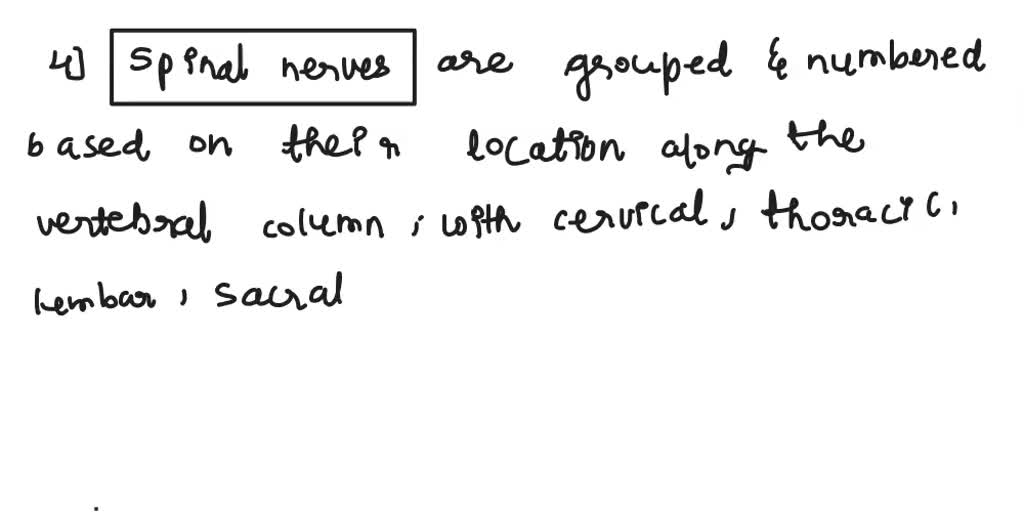 4] Spinal nerves are grouped & numbered
based on their location along the
vertebral column, with cervical, thoracic,
lembar, sacral